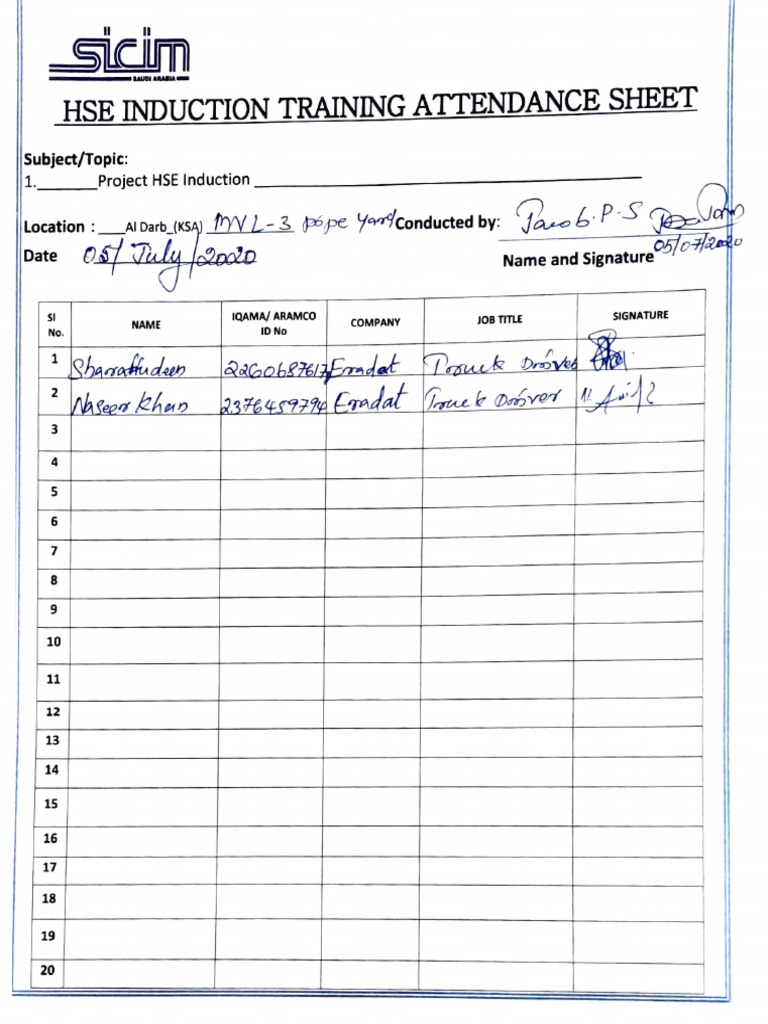 sicim
SAUDI ARABIA
HSE INDUCTION TRAINING ATTENDANCE SHEET
Subject/Topic:
1.______Project HSE Induction
Location : ___Al Darb_(KSA) MVL-3 pipe Yard Conducted by: Jacob.P-S
Date 05/July/2020 Name and Signature 05/07/2020
SI No. NAME IQAMA/ ARAMCO ID No COMPANY JOB TITLE SIGNATURE
1 Sharaffudeen 2260687617 Eradat Truck Driver
2 Naseer Khan 2376459794 Eradat Truck Driver
3
4
5
6
7
8
9
10
11
12
13
14
15
16
17
18
19
20